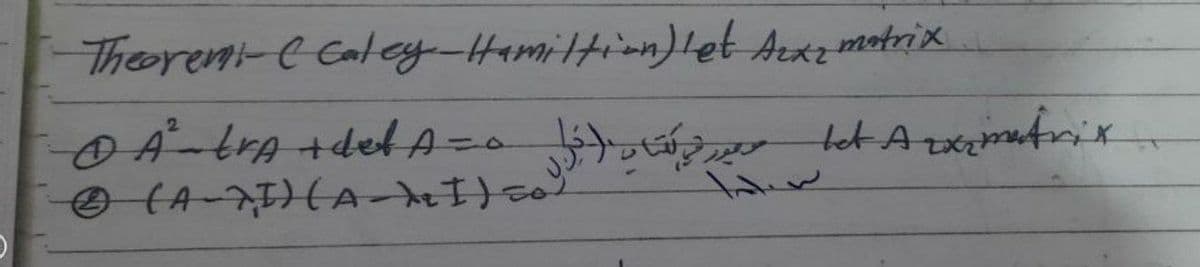 Theorem:- ( Caley-Hamiltion) let A2x2 matrix
① A² - trA + det A = 0 let A 2x2 matrix
② (A-λ₁I)(A-λ₂I) = 0